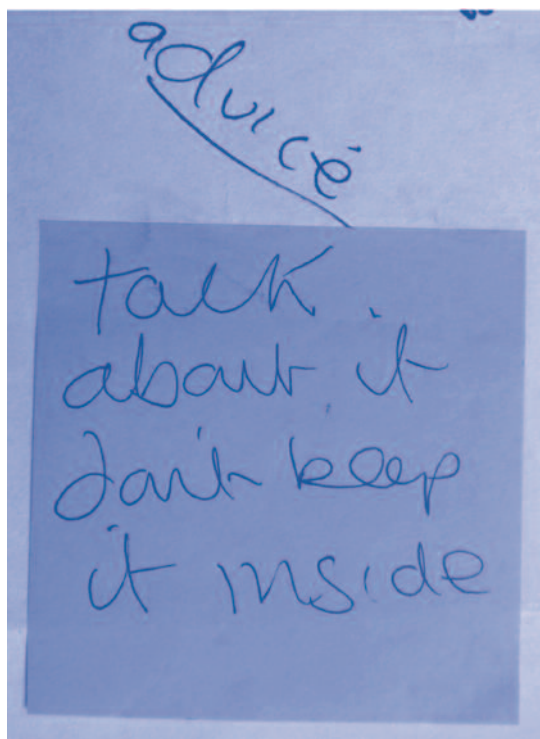 advice
talk
about it
don't keep
it inside